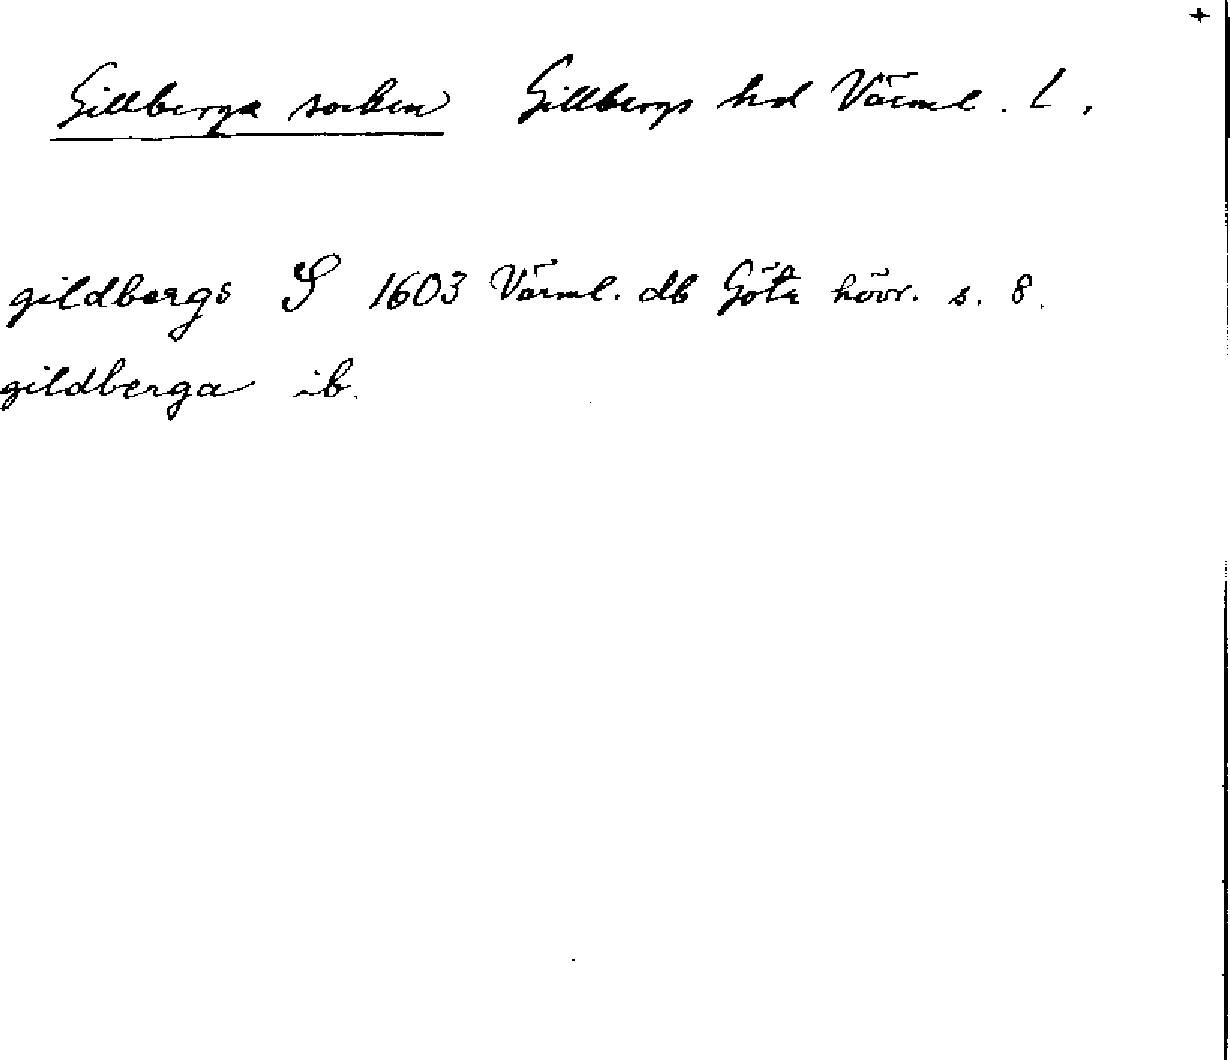 +
Gillberga socken Gillbergs hd Värml. l.
gildbergs S 1603 Värml. db Göta hovr. s. 8.
gildberga ib.